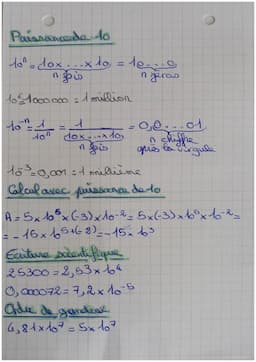 Puissance de 10
10ⁿ = 10x...x10 = 10...0
n fois n zéros
10⁶ = 1000 000 = 1 million
10⁻ⁿ = 1/10ⁿ = 1/10x...x10 = 0,0...01
n fois n chiffres
après la virgule
10⁻³ = 0,001 = 1 millième
Calcul avec puissance de 10
A = 5 x 10⁵ x (-3) x 10⁻² = 5 x (-3) x 10⁵ x 10⁻² =
= -15 x 10⁵⁺⁽⁻²⁾ = -15 x 10³
Ecriture scientifique
25300 = 2,53 x 10⁴
0,000072 = 7,2 x 10⁻⁵
Ordre de grandeur
4,81 x 10⁷ = 5 x 10⁷